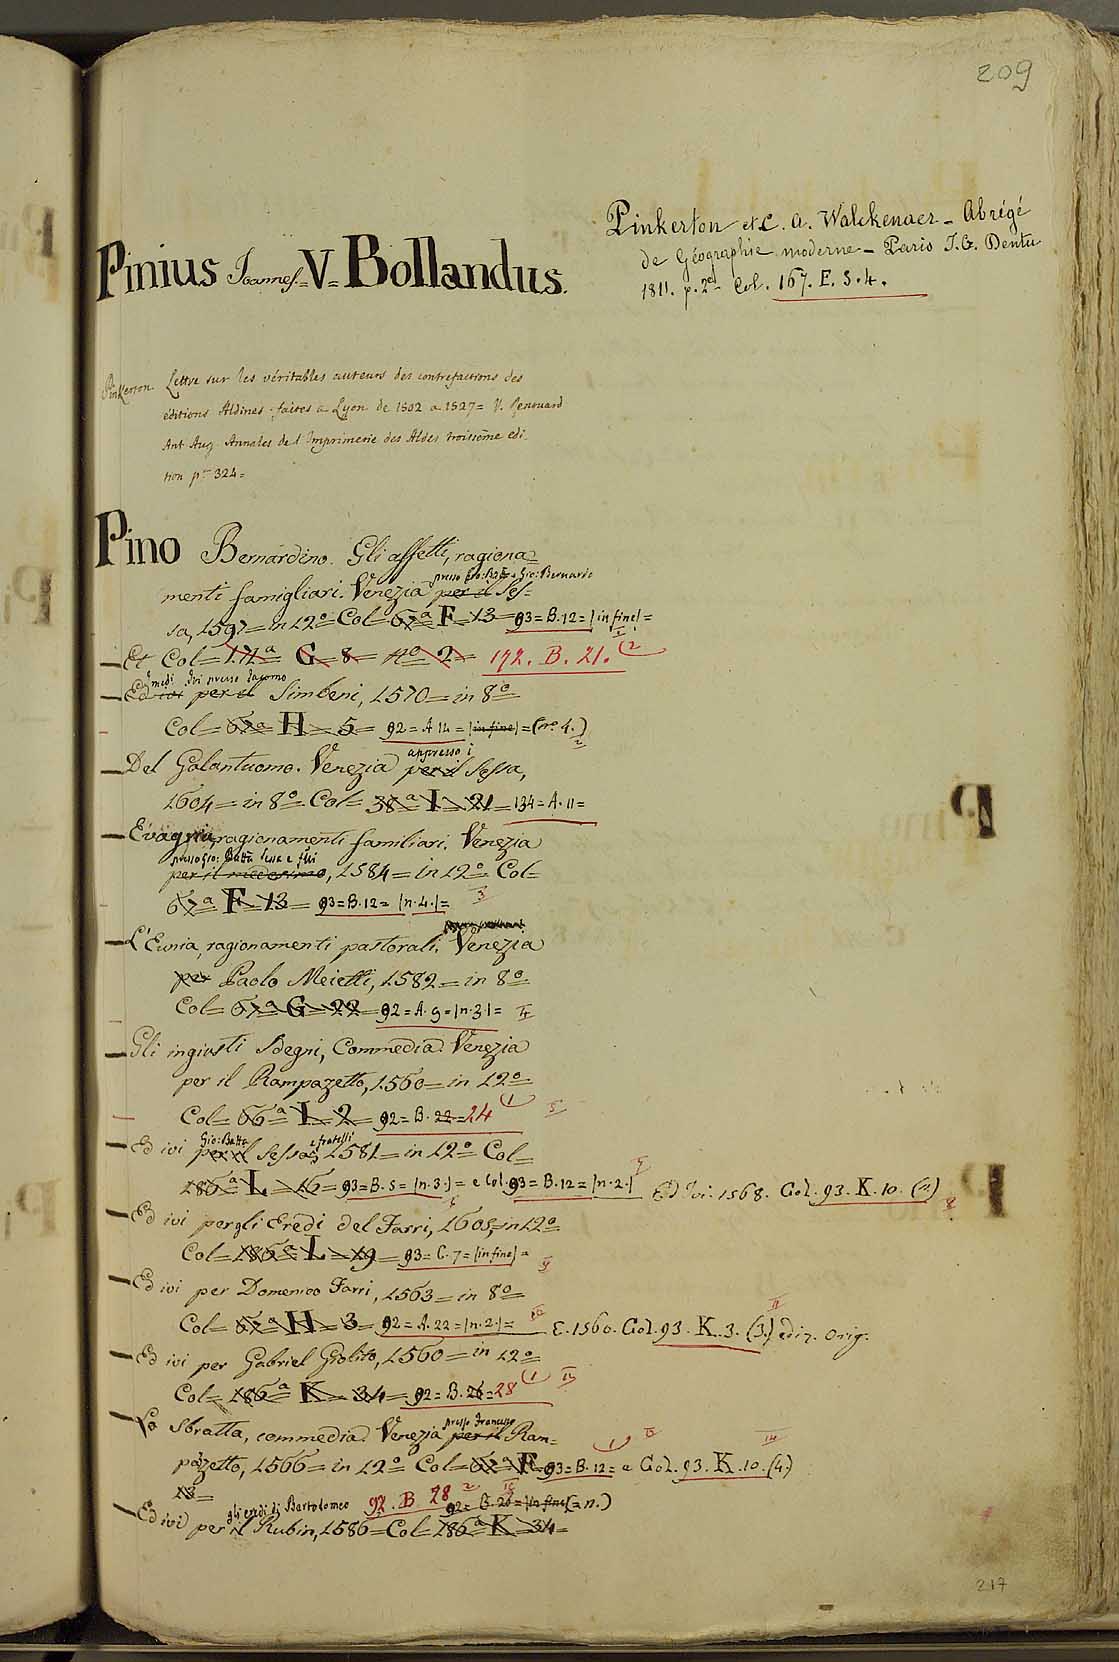 209
Pinius Joannes. = V = Bollandus.
Pinkerton et C. A. Walckenaer - Abrégé
de Géographie moderne - Paris J. G. Dentu
1811. p. 2e Col. 167. E. 3. 4.
Pinkerton Lettre sur les véritables auteurs des contrefactions des
éditions Aldines faites a Lyon de 1502 a 1527 = V. Renouard
Ant Aug Annales de l'Imprimerie des Aldes troisième edi
tion p. 324 =
Pino Bernardino. Gli affetti, ragiona=
presso Gio: Batt e Gio: Bernardo
menti famigliari. Venezia per il Ses=
sa, 1597 = in 12º Col = 67a F = 13 = 93 = B. 12 = |in fine| =
Et Col = 17a G = 8 = nº 2 = 192. B. 21. (2
medi Ivi presso Jacomo
Ed ivi per il Simbeni, 1570 = in 8º
Col = 67a H = 5 = 92 = A 14 = |in fine| = (nº 4.)
appresso i
Del Galantuomo. Venezia per il Sessa,
1604 = in 8º Col = 38a I = 21 = 134 = A. 11 =
Evagria, ragionamenti familiari. Venezia
presso Gio: Batta Sessa e flli
per il medesimo, 1584 = in 12º Col =
67a F = 13 = 93 = B. 12 = |n. 4.| = 3
L'Eunia, ragionamenti pastorali. Venezia
per Paolo Meietti, 1582 = in 8º
Col = 67a G = 22 = 92 = A. 9 = |n. 3.| =
Gli ingiusti Sdegni, Commedia. Venezia
per il Rampazetto, 1560 = in 12º
Col = 66a I = 2 = 92 = B. 22 = 24 (1 5
Gio: Batta e fratelli
Ed ivi per il Sessa, 1581 = in 12º Col =
186a L = 16 = 93 = B. 5 = |n. 3.| = e Col. 93 = B. 12 = |n. 2.| Ed Ivi. 1568. Col. 93. K. 10. (2) 8
Ed ivi per gli Eredi del Farri, 1605, in 12º
Col = 186a L = 19 = 93 = C. 7 = |in fine| = 9
Ed ivi per Domenico Farri, 1563 = in 8º
Col = 67a H = 3 = 92 = A. 22 = |n. 2.| = 10 E. 1560. Col. 93. K. 3. (3.) ediz. orig. 11
Ed ivi per Gabriel Giolito, 1560 = in 12º
Col = 186a K = 34 = 92 = B. 26 = 28 (1
presso Francesco
Lo Sbratta, commedia. Venezia per il Ram=
pazetto, 1566 = in 12º Col = 67a F 93 = B. 12 = e Col. 93. K. 10. (4.) 14
13 =
gli eredi di Bartolomeo 92. B 28 2 92 = B. 26 = |in fine| (= n.)
Ed ivi per il Rubin, 1586 = Col = 186a K = 34 =
217